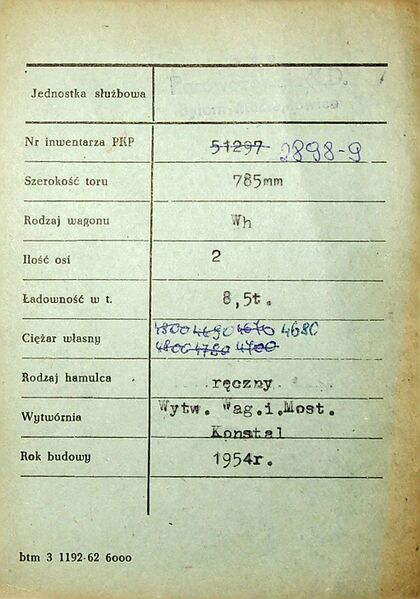 Jednostka służbowa
Nr inwentarza PKP 51297 2898-9
Szerokość toru 785mm
Rodzaj wagonu Wh
Ilość osi 2
Ładowność w t. 8,5t.
Ciężar własny 4800 4690 4670 4680
4800 4780 4700
Rodzaj hamulca ręczny
Wytwórnia Wytw. Wag.i.Most.
Konstal
Rok budowy 1954r.
btm 3 1192-62 6000